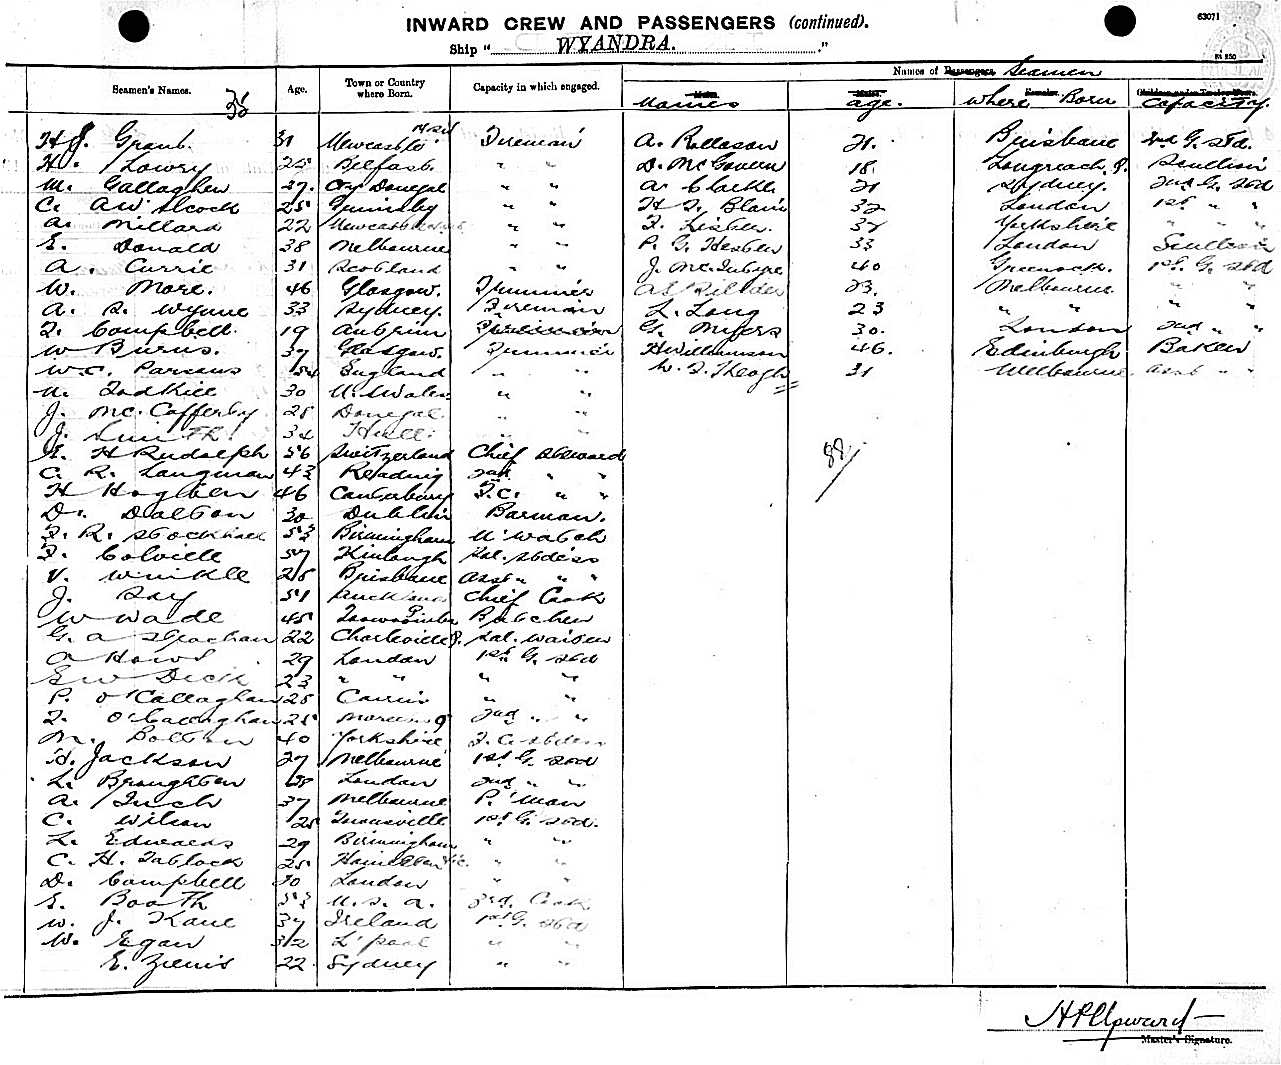 INWARD CREW AND PASSENGERS (continued).
63071
Ship "WYANDRA."
Seamen's Names. Age. Town or Country where Born. Capacity in which engaged. Names of Passengers Seamen
38
Names age. where Born Capacity.
H J. Grant 31 Newcastle Fireman A. Rollason 21. Brisbane 2nd G. Std.
H. Lowry 25 Belfast " " D. McGovern 18. Longreach Q. Scullion
M. Gallagher 27. Coy Donegal " " A. Clarke 21 Sydney. 2nd G. Std
C. A W Alcock 25 Grimsby " " H. T. Blair 32 London 1st " "
A. Millard 22 Newcastle " " F. Lister. Yorkshire " " "
E. Donald 38 Melbourne " " P. G. Hesten 33 London Scullion
A. Currie 31 Scotland " " J. McIntyre 40 Greenock. 1st. G. Std
W. More. 46 Glasgow. Trimmer 23. Melbourne " "
A. S. Wynne 33 Sydney. Fireman L. Long 23 " " " "
T. Campbell. 19 Antrim G. Myers 30. London 2nd " "
W Burns. 37 Glasgow. Trimmer H Williamson 46. Edinburgh Baker
W. C. Parsons 54 England " " 31 Melbourne. asst " "
M. Todhill 30 N. S Wales " "
J. McCafferty 28 Donegal. " "
J. Smith. 34 Hull. " "
E. H Rudolph 56 Switzerland Chief Steward
C. R. Langman 43 Reading 2nd " "
H Hogben 46 Canterbury F.C. " "
D. Dalton 30 Dublin Barman.
F. R. Stockhall 53 Birmingham N' Watch
F. Colville 57 Kinlough Sal. Stdess
V. Winkle 28 Brisbane Asst " " "
J. Day 51 Auckland Chief Cook
W Wade 45 Toowoomba Q. Butcher
G. A Strachan 22 Charleville Q. Sal. Waiter
A Howd 29 London 1st G. Std
E W Dick 23 " " " "
P. O'Callaghan 25 Cairns " "
T. O'Callaghan 25 2nd " "
M. Bolton 40 Yorkshire F. C Stdess
H. Jackson 27 Melbourne 1st G. Std
L. Broughton 38 London 2nd " "
A. Inch 37 Melbourne P. 'man
C. Wilson 25 Townsville 1st G. Std.
L. Edwards 29 Birmingham " "
C. H. Tablock 25 Hamilton " "
D. Campbell 30 London " "
E. Booth 53 U. S. A. 3rd. Cook
W. J. Kane 37 Ireland 1st G. Std
W. Egan 32 L'pool " "
E. Zienis 22 Sydney " "
88
H P Upward
Master's Signature.